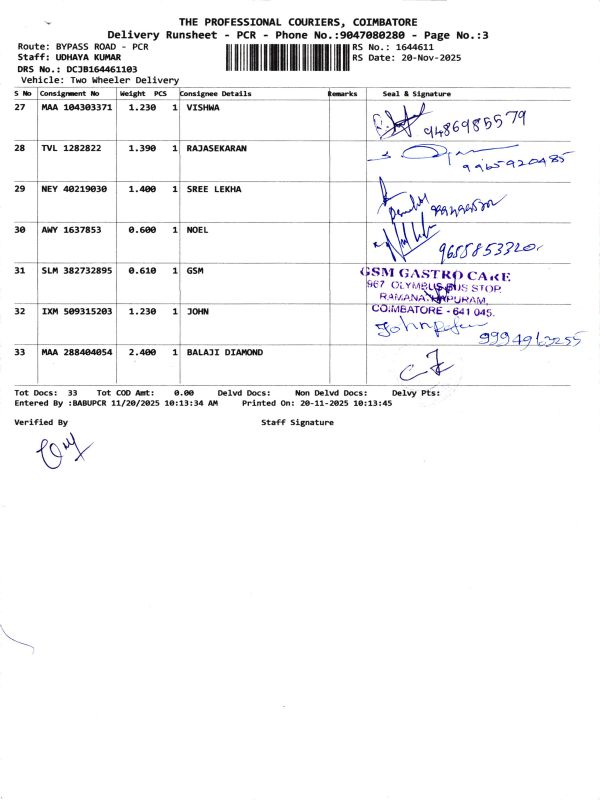 THE PROFESSIONAL COURIERS, COIMBATORE
Delivery Runsheet - PCR - Phone No.:9047080280 - Page No.:3
Route: BYPASS ROAD - PCR RS No.: 1644611
Staff: UDHAYA KUMAR RS Date: 20-Nov-2025
DRS No.: DCJB164461103
Vehicle: Two Wheeler Delivery
S No Consignment No Weight PCS Consignee Details Remarks Seal & Signature
27 MAA 104303371 1.230 1 VISHWA
9486985579
28 TVL 1282822 1.390 1 RAJASEKARAN
9965920485
29 NEY 40219030 1.400 1 SREE LEKHA
30 AWY 1637853 0.600 1 NOEL
9655853320.
31 SLM 382732895 0.610 1 GSM
GSM GASTRO CARE
967 OLYMBUS BUS STOP,
RAMANATHAPURAM,
COIMBATORE - 641 045.
32 IXM 509315203 1.230 1 JOHN
John
9994963255
33 MAA 288404054 2.400 1 BALAJI DIAMOND
Tot Docs: 33 Tot COD Amt: 0.00 Delvd Docs: Non Delvd Docs: Delvy Pts:
Entered By :BABUPCR 11/20/2025 10:13:34 AM Printed On: 20-11-2025 10:13:45
Verified By Staff Signature